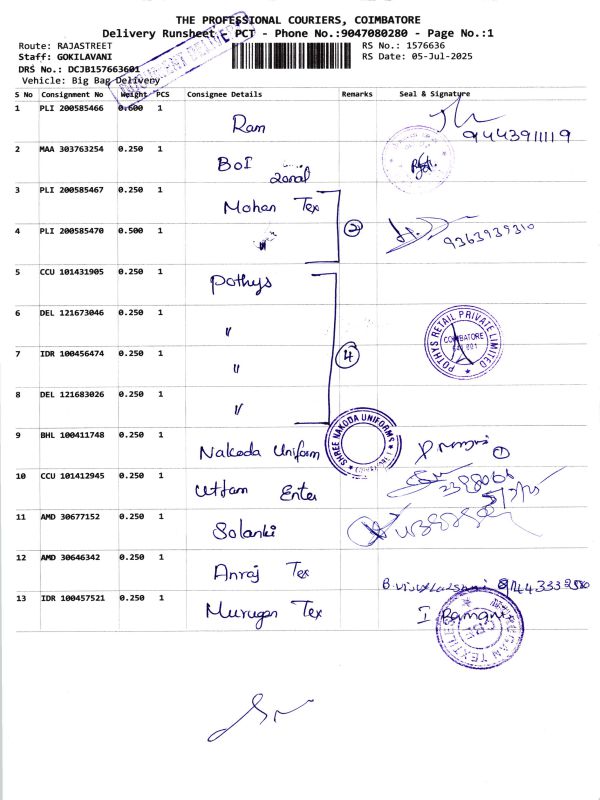 THE PROFESSIONAL COURIERS, COIMBATORE
Delivery Runsheet PCT - Phone No.:9047080280 - Page No.:1
Route: RAJASTREET
RS No.: 1576636
Staff: GOKILAVANI
RS Date: 05-Jul-2025
DRS No.: DCJB157663601
Vehicle: Big Bag Delivery
S No Consignment No Weight PCS Consignee Details Remarks Seal & Signature
1 PLI 200585466 0.600 1 Ram 9443911119
2 MAA 303763254 0.250 1 BOI Zonal
3 PLI 200585467 0.250 1 Mohan Tex
4 PLI 200585470 0.500 1 " 2 9363939310
5 CCU 101431905 0.250 1 Pothys
6 DEL 121673046 0.250 1 "
POTHYS RETAIL PRIVATE LIMITED
COIMBATORE
7 IDR 100456474 0.250 1 " 4
8 DEL 121683026 0.250 1 "
9 BHL 100411748 0.250 1 Nakoda Uniform 1
SHREE NAKODA UNIFORMS
10 CCU 101412945 0.250 1 Uttam Enter
5/7/25
11 AMD 30677152 0.250 1 Solanki
12 AMD 30646342 0.250 1 Anraj Tex
13 IDR 100457521 0.250 1 Murugan Tex